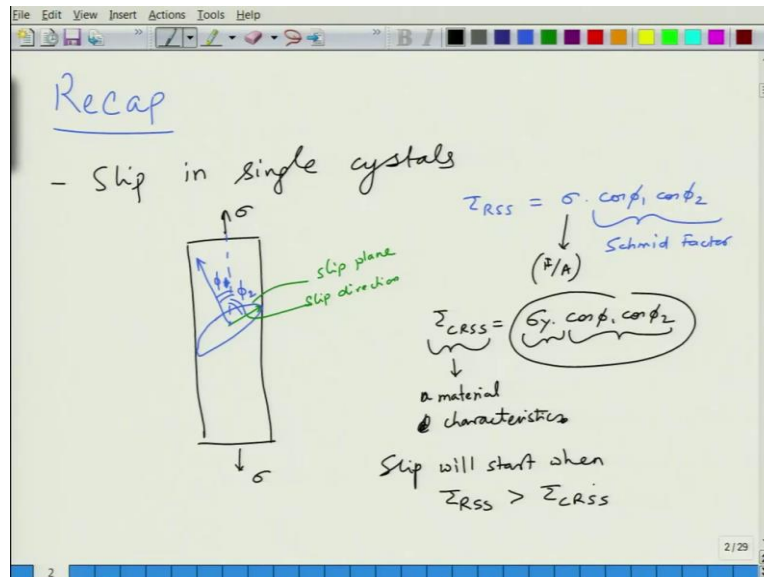 File Edit View Insert Actions Tools Help
Recap
- Slip in single cystals
σ
ϕ1
ϕ2
slip plane
slip direction
σ
τRSS = σ. cosϕ1 cosϕ2
Schmid Factor
(F/A)
τCRSS = σy. cosϕ1 cosϕ2
a material
characteristics
Slip will start when
τRSS > τCRSS
2/29
2